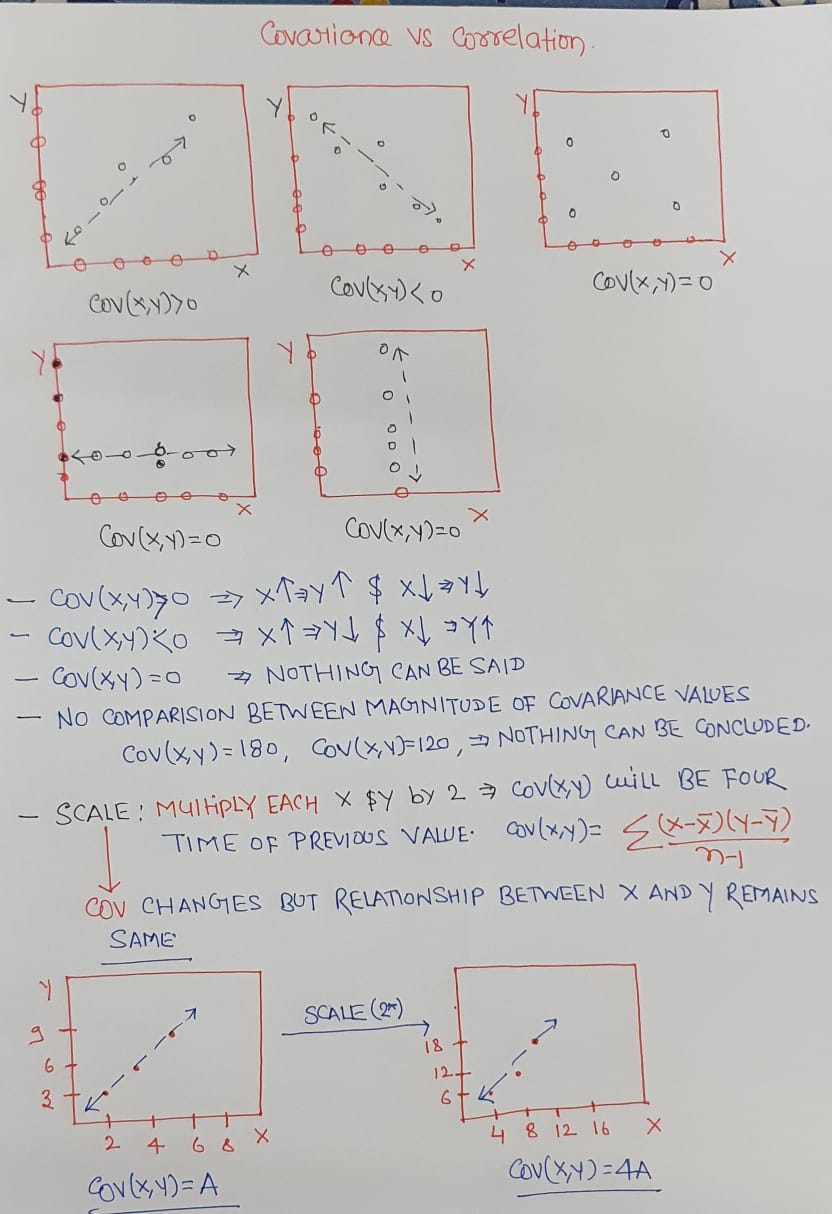 Covariance VS Correlation.
Y
X
COV(X,Y)>0
Y
X
COV(X,Y)<0
Y
X
COV(X,Y)=0
Y
X
COV(X,Y)=0
Y
X
COV(X,Y)=0
— COV(X,Y)>0 ⇒ X↑⇒Y↑ $ X↓⇒Y↓
— COV(X,Y)<0 ⇒ X↑⇒Y↓ $ X↓⇒Y↑
— COV(X,Y)=0 ⇒ NOTHING CAN BE SAID
— NO COMPARISION BETWEEN MAGNITUDE OF COVARIANCE VALUES
COV(X,Y)=180, COV(X,Y)=120, ⇒ NOTHING CAN BE CONCLUDED.
— SCALE: MULTIPLY EACH X $ Y by 2 ⇒ COV(X,Y) will BE FOUR
TIME OF PREVIOUS VALUE. COV(X,Y)= Σ(X-X̄)(Y-Ȳ)
n-1
COV CHANGES BUT RELATIONSHIP BETWEEN X AND Y REMAINS
SAME
Y
9
6
3
2 4 6 8 X
COV(X,Y)=A
SCALE(2*)
18
12
6
4 8 12 16 X
COV(X,Y)=4A